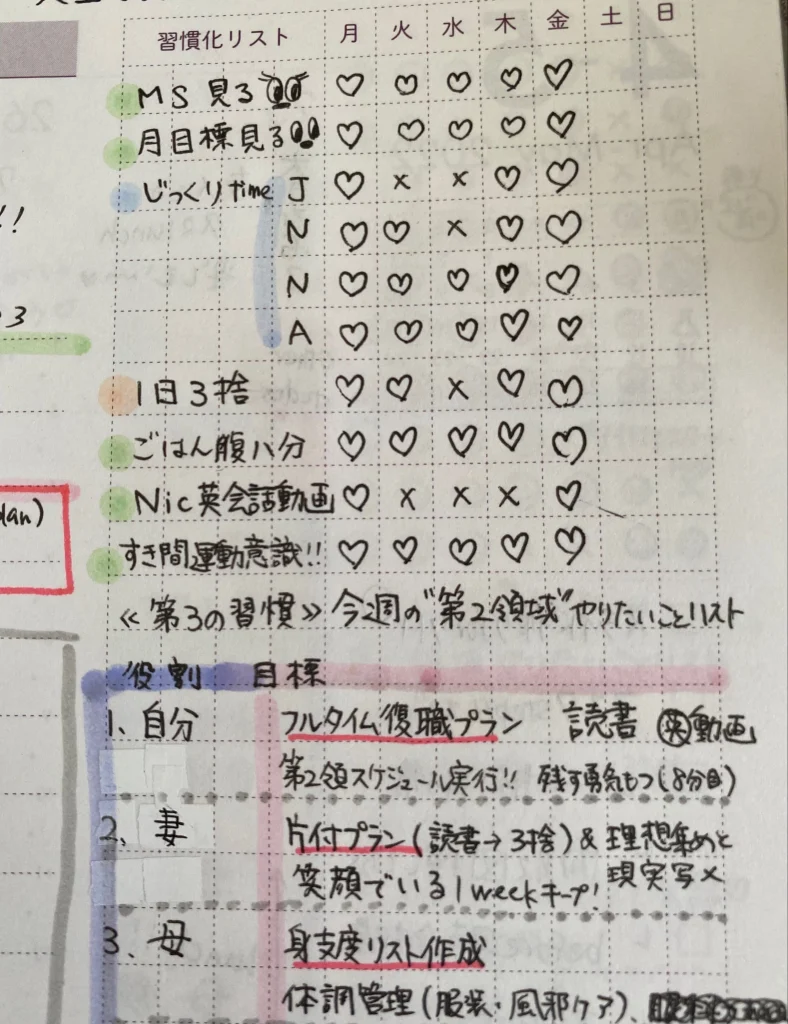 習慣化リスト 月 火 水 木 金 土 日
MS 見る ♡ ♡ ♡ ♡ ♡
月目標見る ♡ ♡ ♡ ♡ ♡
じっくりtime J ♡ × × ♡ ♡
N ♡ ♡ × ♡ ♡
N ♡ ♡ ♡ ♡ ♡
A ♡ ♡ ♡ ♡ ♡
!!
3
1日3捨 ♡ ♡ × ♡ ♡
ごはん腹八分 ♡ ♡ ♡ ♡ ♡
Nic英会話動画 ♡ × × × ♡
lan)
すき間運動意識!! ♡ ♡ ♡ ♡ ♡
≪第3の習慣≫ 今週の"第2領域"やりたいことリスト
役割 目標
1、自分 フルタイム復職プラン 読書 英動画
第2領スケジュール実行!! 残す勇気もつ(8分目)
2、妻 片付プラン(読書→3捨)& 理想集めと
笑顔でいる1weekキープ! 現実写メ
3、母 身支度リスト作成
体調管理(服装・風邪ケア)、